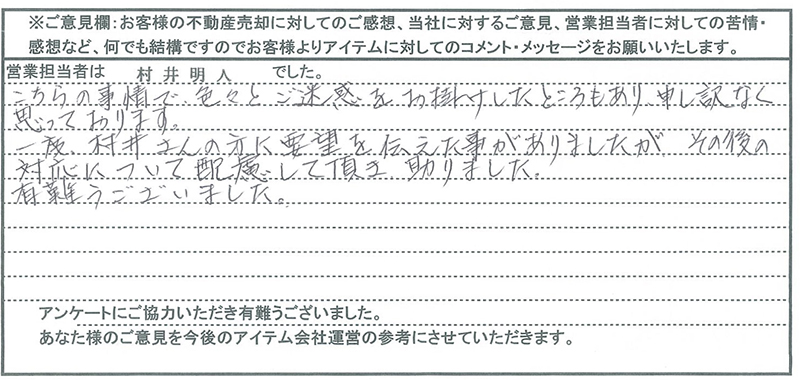 ※ご意見欄:お客様の不動産売却に対してのご感想、当社に対するご意見、営業担当者に対しての苦情・
感想など、何でも結構ですのでお客様よりアイテムに対してのコメント・メッセージをお願いいたします。
営業担当者は 村井明人 でした。
こちらの事情で、色々とご迷惑をお掛けしたところもあり、申し訳なく
思っております。
一度、村井さんの方に要望を伝えた事がありましたが、その後の
対応について配慮して頂き助りました。
有難うございました。
アンケートにご協力いただき有難うございました。
あなた様のご意見を今後のアイテム会社運営の参考にさせていただきます。